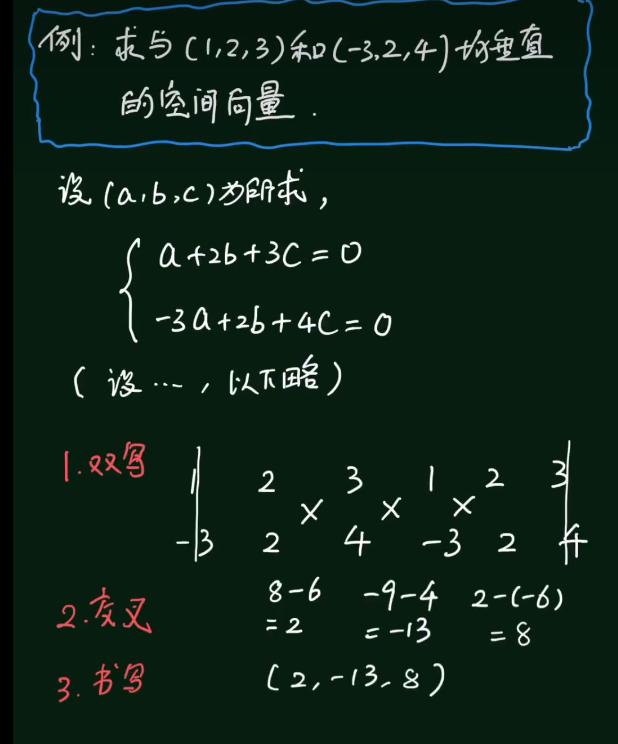 例：求与(1,2,3)和(-3,2,4)均垂直
的空间向量.
设(a,b,c)为所求,
a+2b+3c=0
-3a+2b+4c=0
(设…,以下略)
1.双写
1 2 3 1 2 3
× × ×
-3 2 4 -3 2 4
2.交叉
8-6 -9-4 2-(-6)
=2 =-13 =8
3.书写
(2,-13,8)